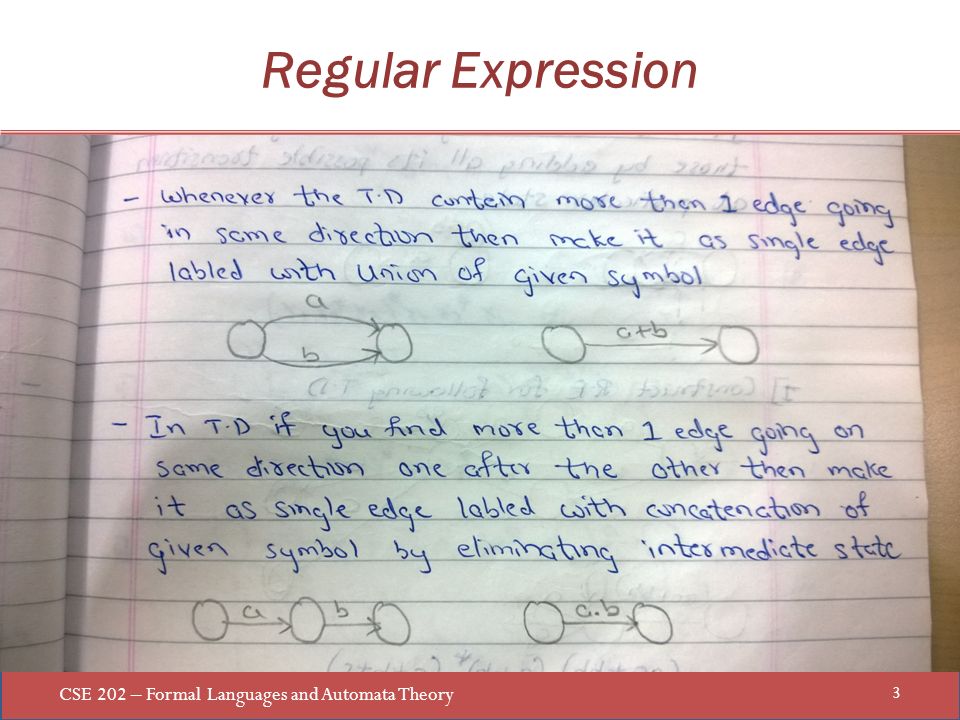 Regular Expression
- Whenever the T.D contein more then 1 edge going
in same direction then make it as single edge
labled with Union of given symbol
a
b
a+b
- In T.D if you find more than 1 edge going on
same direction one after the other then make
it as single edge labled with concatenation of
given symbol by eliminating intermediate state
a b a.b
CSE 202 – Formal Languages and Automata Theory 3